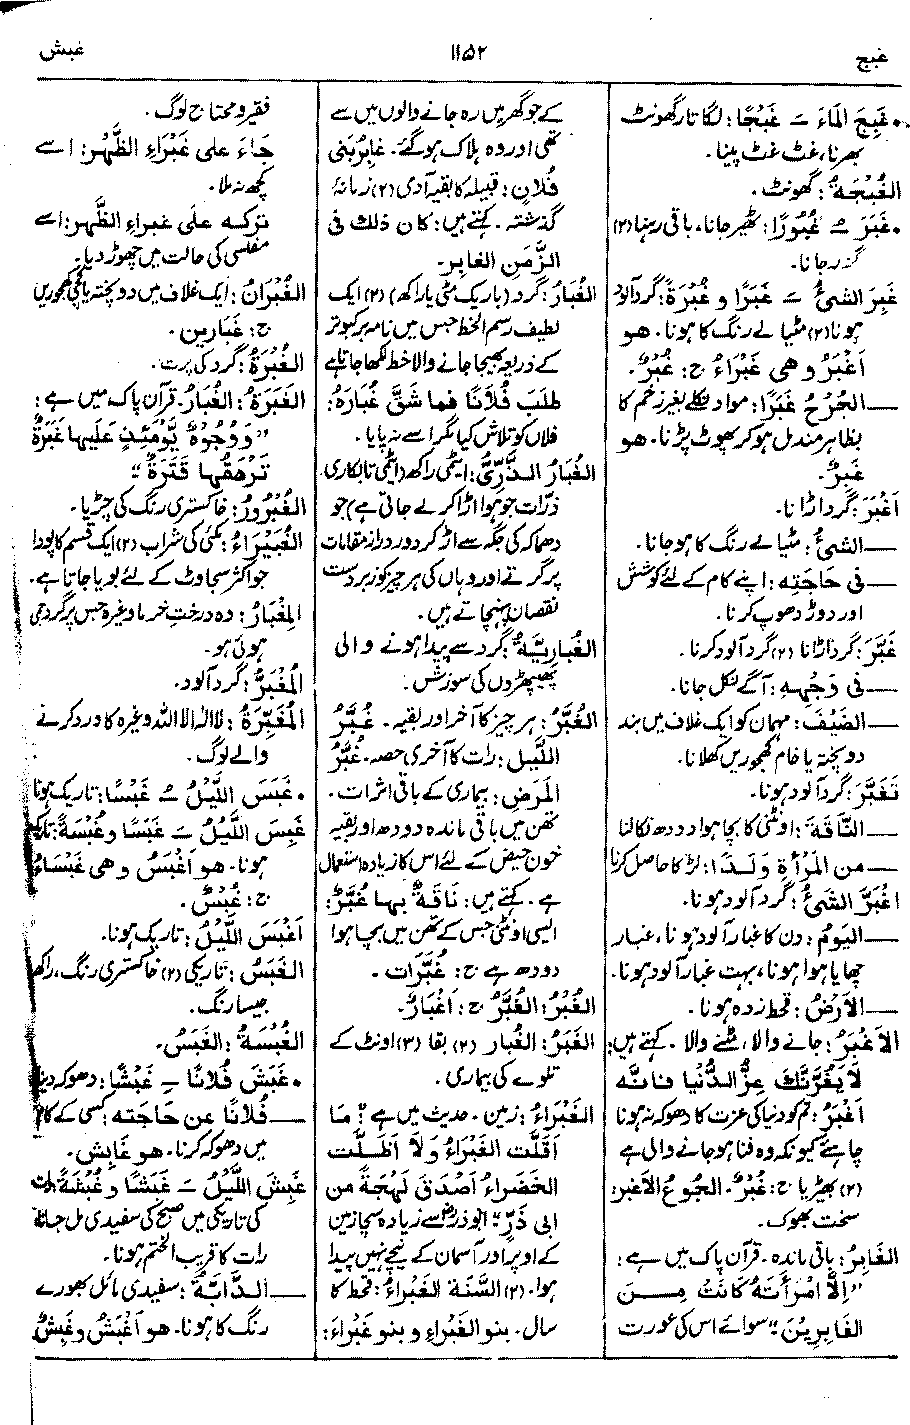 غبج
۱۱۵۲
غبش
• غَبِجَ المَاءَ ــَ غَبْجًا: لگاتار گھونٹ
بھرنا، غٹ غٹ پینا۔
الغُبْجَةُ: گھونٹ۔
• غَبَرَ ــُ غُبُورًا: ٹھیر جانا، باقی رہنا (۲)
گذر جانا۔
غَبِرَ الشئُ ــَ غَبَرًا و غُبْرَةً: گرد آلود
ہونا (۲) مٹیالے رنگ کا ہونا۔ ھو
أغْبَرُ و ھی غَبْرَاءُ ج: غُبْرٌ۔
ــــ الجُرْحُ غَبَرًا: مواد نکلے بغیر زخم کا
بظاہر مندمل ہو کر پھوٹ پڑنا۔ ھو
غَبِرٌ۔
أغْبَرَ: گرد اڑانا۔
ــــ الشئُ: مٹیالے رنگ کا ہو جانا۔
ــــ فی حَاجَتِه: اپنے کام کے لئے کوشش
اور دوڑ دھوپ کرنا۔
غَبَّرَ: گرد اڑانا (۲) گرد آلود کرنا۔
ــــ فی وَجْهِهِ: آگے نکل جانا۔
ــــ الضَيْفَ: مہمان کو ایک غلاف میں بند
دو پختہ یا خام کھجوریں کھلانا۔
تَغَبَّرَ: گرد آلود ہونا۔
ــــ النَّاقَةَ: اونٹنی کا بچا ہوا دودھ نکالنا
ــــ من المَرْأَةِ وَلَدًا: لڑکا حاصل کرنا
اغْبَرَّ الشَئُ: گرد آلود ہونا۔
ــــ اليَوْمُ: دن کا غبار آلود ہونا، غبار
چھایا ہوا ہونا، بہت غبار آلود ہونا۔
ــــ الأرْضُ: قحط زدہ ہونا۔
الأغْبَرُ: جانے والا، مٹنے والا۔ کہتے ہیں:
لَا يَغُرَّنَّكَ عِزُّ الدُّنْيا فَانَّه
أغْبَرُ: تم کو دنیا کی عزت کا دھوکہ نہ ہونا
چاہئے کیونکہ وہ فنا ہو جانے والی ہے
(۲) بھیڑیا ج: غُبْرٌ۔ الجُوعُ الأغْبَر:
سخت بھوک۔
الغَابِرُ: باقی ماندہ۔ قرآن پاک میں ہے:
"إلَّا امْرَأتَهُ كَانَتْ مِــنَ
الغَابِرِيْنَ" سوائے اس کی عورت
کے جو گھر میں رہ جانے والوں میں سے
تھی اور وہ ہلاک ہو گئے۔ غابِرُ بَنی
فُلَانٍ: قبیلہ کا بقیہ آدمی (۲) زمانۂ
گذشتہ۔ کہتے ہیں: کان ذلك فی
الزَّمَنِ الغابِرِ۔
الغُبَارُ: گرد (باریک مٹی یا راکھ) (۲) ایک
لطیف رسم الخط جس میں نامہ بر کبوتر
کے ذریعہ بھیجا جانے والا خط لکھا جاتا ہے
طلَبَ فُلَانًا فما شَقَّ غُبَارَهُ:
فلاں کو تلاش کیا مگر اسے نہ پایا۔
الغُبَارُ الـذَّرِّیُّ: ایٹمی راکھ (ایٹمی تابکاری
ذرّات جو ہوا اڑا کر لے جاتی ہے) جو
دھماکہ کی جگہ سے اڑ کر دور دراز مقامات
پر گرتے اور وہاں کی ہر چیز کو زبردست
نقصان پہنچاتے ہیں۔
الغُبَارِيَّةُ: گرد سے پیدا ہونے والی
پھیپھڑوں کی سوزش۔
الغُبَّرُ: ہر چیز کا آخر اور بقیہ۔ غُبَّرُ
اللَّيلِ: رات کا آخری حصہ۔ غُبَّرُ
المَرَضِ: بیماری کے باقی اثرات۔
تھن میں باقی ماندہ دودھ اور بقیہ
خون حیض کے لئے اس کا زیادہ استعمال
ہے۔ کہتے ہیں: نَاقَةٌ بِها غُبَّرٌ:
ایسی اونٹنی جس کے تھن میں بچا ہوا
دودھ ہے ج: غُبَّرَات۔
الغُبْرُ: الغُبَّرُ ج: أغْبَارٌ۔
الغَبَرُ: الغُبار (۲) بقا (۳) اونٹ کے
تلوے کی بیماری۔
الغَبْرَاءُ: زمین۔ حدیث میں ہے؟ مَا
أقَلَّتِ الغَبْرَاءُ وَلَا أظَـلَّتِ
الخَضْرَاءُ أصْدَقَ لَهْجَةً من
ابی ذَرٍّ" ابوذرؓ سے زیادہ سچا زمین
کے اوپر اور آسمان کے نیچے نہیں پیدا
ہوا۔ (۲) السَّنَة الغَبْرَاءُ: قحط کا
سال۔ بنو الغَبْرَاءِ و بنو غَبْرَاءَ:
فقیر و محتاج لوگ۔
جَاءَ علی غَبْرَاءِ الظَّهْرِ: اسے
کچھ نہ ملا۔
ترکه علَی غبراءِ الظَّهرِ: اسے
مفلسی کی حالت میں چھوڑ دیا۔
الغُبْرَانُ: ایک غلاف میں دو پختہ یا کچی کھجوریں
ج: غَبَارِین۔
الغُبْرَةُ: گرد کی پرت۔
الغَبَرَةُ: الغُبَارُ۔ قرآن پاک میں ہے:
"وَوُجُوْهٌ يَّوْمَئِذٍ عَلَيها غَبَرَةٌ
تَرْهَقُها قَتَرَةٌ"
الغُبْرُورُ: خاکستری رنگ کی چڑیا۔
الغُبَيْرَاءُ: مکئی کی شراب (۲) ایک قسم کا پودا
جو اکثر سجاوٹ کے لئے بویا جاتا ہے۔
المِغْبَارُ: وہ درختِ خرما وغیرہ جس پر گرد جمی
ہوئی ہو۔
المُغْبَرُّ: گرد آلود۔
المُغَبِّرَةُ: لا الٰہ الا اللہ وغیرہ کا ورد کرنے
والے لوگ۔
• غَبَسَ اللَّيْلُ ــُ غَبْسًا: تاریک ہونا
غَبِسَ اللَّيْلُ ــَ غَبَسًا و غُبْسَةً: تاریک
ہونا۔ ھو أغْبَسُ و ھی غَبْسَاءُ
ج: غُبْسٌ۔
أغْبَسَ اللَّيْلُ: تاریک ہونا۔
الغَبَسُ: تاریکی (۲) خاکستری رنگ، راکھ
جیسا رنگ۔
الغُبْسَةُ: الغَبَسُ۔
• غَبَشَ فُلَانًا ــِ غَبْشًا: دھوکہ دینا
ــــ فُلَانًا عن حَاجَتِه: کسی کے کام
میں دھوکہ کرنا۔ ھو غَابِش۔
غَبِشَ اللَّيْلُ ــَ غَبَشًا و غُبْشَةً: رات
کی تاریکی میں صبح کی سفیدی مل جانا
رات کا قریب الختم ہونا۔
ــــ الدَّابَّةُ: سفیدی مائل بھورے
رنگ کا ہونا۔ ھو أغْبَشُ و غَبِشٌ